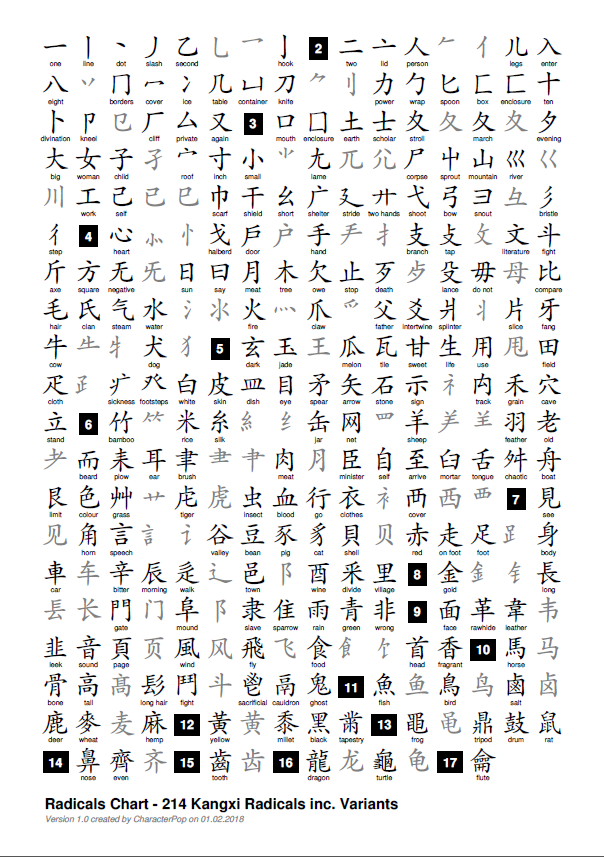 一 丨 丶 丿 乙 乚 乛 亅 2 二 亠 人 𠂉 亻 儿 入
one line dot slash second hook two lid person legs enter
八 丷 冂 冖 冫 几 凵 刀 ⺈ 刂 力 勹 匕 匚 匸 十
eight borders cover ice table container knife power wrap spoon box enclosure ten
卜 卩 㔾 厂 厶 又 3 口 囗 土 士 夂 夂 夊 夊 夕
divination kneel cliff private again mouth enclosure earth scholar stroll march evening
大 女 子 孑 宀 寸 小 ⺌ 尢 兀 尣 尸 屮 山 巛 巜
big woman child roof inch small lame corpse sprout mountain river
川 工 己 已 巳 巾 干 幺 广 廴 廾 弋 弓 彐 彑 彡
work self scarf shield short shelter stride two hands shoot bow snout bristle
彳 4 心 ⺗ 忄 戈 戶 户 手 龵 扌 支 攴 攵 文 斗
step heart halberd door hand branch tap literature fight
斤 方 无 旡 日 曰 月 木 欠 止 歹 歺 殳 毋 母 比
axe square negative sun say meat tree owe stop death lance do not compare
毛 氏 气 水 氵 氺 火 灬 爪 爫 父 爻 爿 丬 片 牙
hair clan steam water fire claw father intertwine splinter slice fang
牛 ⺧ 牜 犬 犭 5 玄 玉 王 瓜 瓦 甘 生 用 甩 田
cow dog dark jade melon tile sweet life use field
疋 ⺪ 疒 癶 白 皮 皿 目 矛 矢 石 示 礻 禸 禾 穴
cloth sickness footsteps white skin dish eye spear arrow stone sign track grain cave
立 6 竹 ⺮ 米 糸 糹 纟 缶 网 罒 羊 ⺶ ⺷ 羽 老
stand bamboo rice silk jar net sheep feather old
耂 而 耒 耳 聿 ⺻ 肀 肉 月 臣 自 至 臼 舌 舛 舟
beard plow ear brush meat minister self arrive mortar tongue chaotic boat
艮 色 艸 艹 虍 虎 虫 血 行 衣 衤 襾 西 覀 7 見
limit colour grass tiger insect blood go clothes cover see
见 角 言 訁 讠 谷 豆 豕 豸 貝 贝 赤 走 足 ⻊ 身
horn speech valley bean pig cat shell red on foot foot body
車 车 辛 辰 辵 辶 邑 阝 酉 釆 里 8 金 釒 钅 長
car bitter morning walk town wine divide village gold long
镸 长 門 门 阜 阝 隶 隹 雨 青 非 9 面 革 韋 韦
gate mound slave sparrow rain green wrong face rawhide leather
韭 音 頁 页 風 风 飛 飞 食 飠 饣 首 香 10 馬 马
leek sound page wind fly food head fragrant horse
骨 高 髙 髟 鬥 斗 鬯 鬲 鬼 11 魚 鱼 鳥 鸟 鹵 卤
bone tall long hair fight sacrificial cauldron ghost fish bird salt
鹿 麥 麦 麻 12 黃 黄 黍 黑 黹 13 黽 黾 鼎 鼓 鼠
deer wheat hemp yellow millet black tapestry frog tripod drum rat
14 鼻 齊 齐 15 齒 齿 16 龍 龙 龜 龟 17 龠
nose even tooth dragon turtle flute
Radicals Chart - 214 Kangxi Radicals inc. Variants
Version 1.0 created by CharacterPop on 01.02.2018